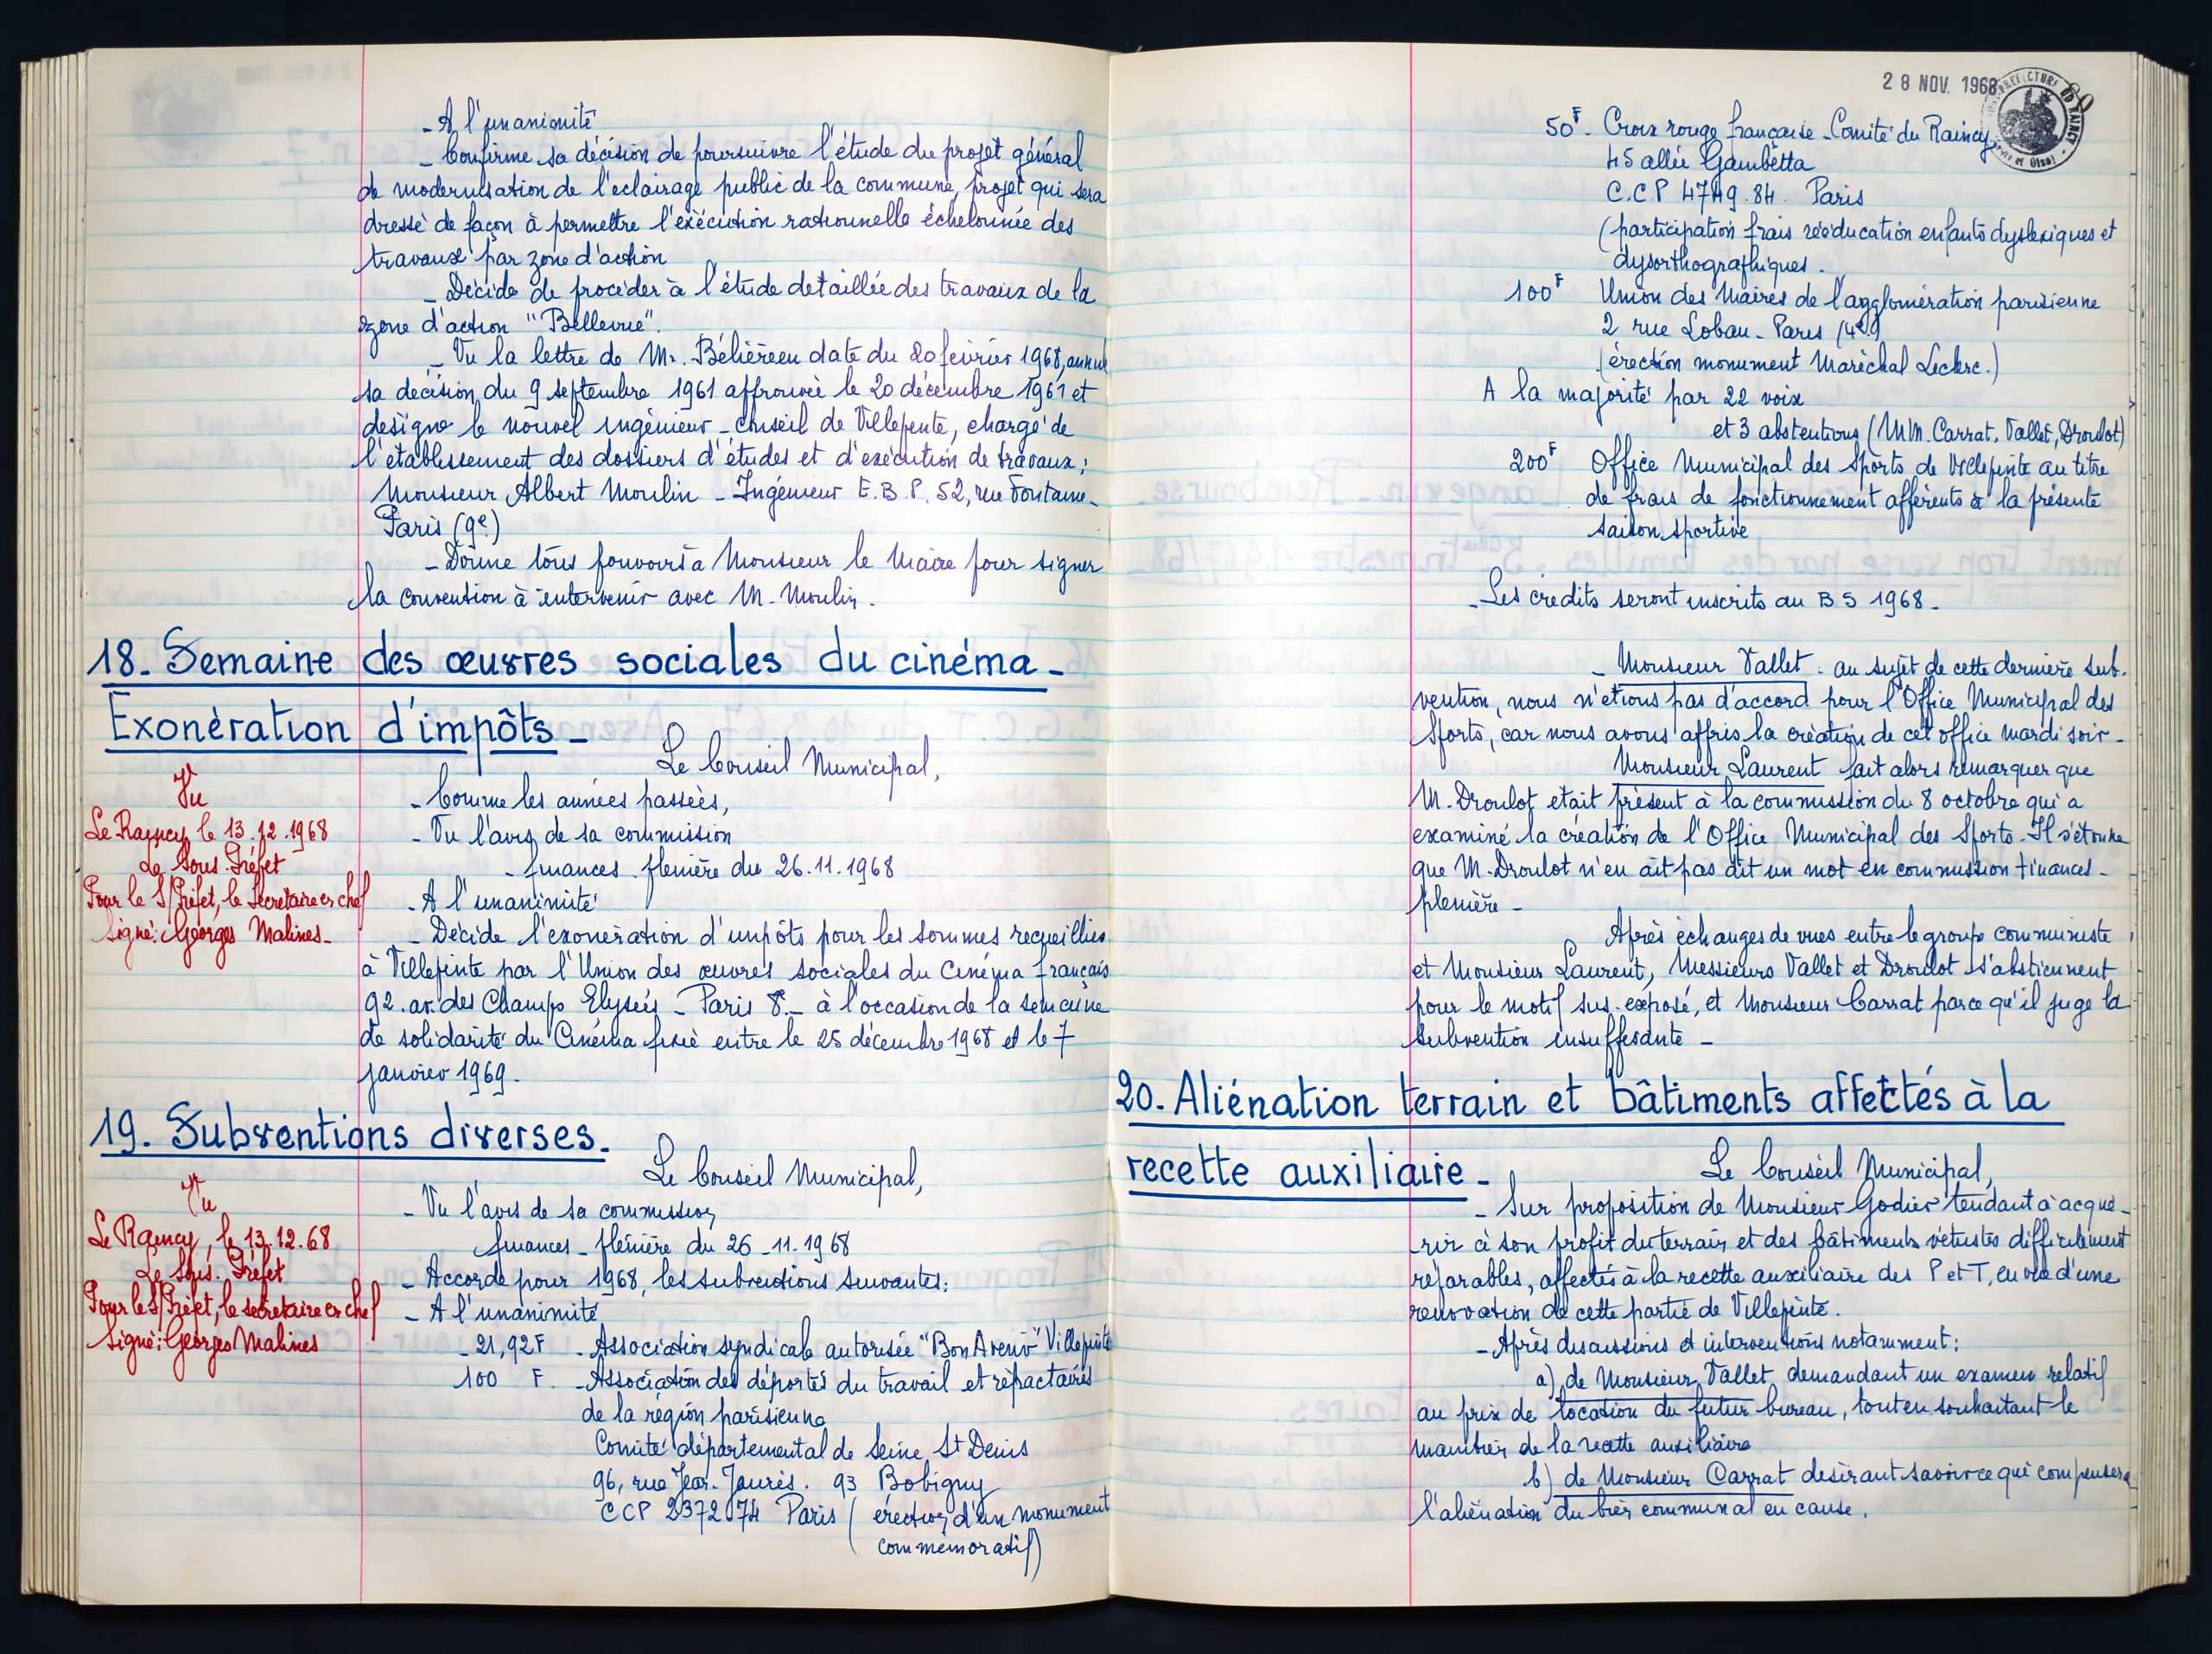 - A l'unanimité
- Confirme sa décision de poursuivre l'étude du projet général
de modernisation de l'eclairage public de la commune, projet qui sera
dressé de façon à permettre l'exécution rationnelle échelonnée des
travaux par zone d'action
- Décide de procéder à l'étude detaillée des travaux de la
zone d'action "Bellevue".
- Vu la lettre de M. Bélière en date du 20 février 1968, annule
sa décision du 9 septembre 1961 approuvée le 20 décembre 1961 et
désigne le nouvel ingénieur-conseil de Villepinte, chargé de
l'établissement des dossiers d'études et d'exécution de travaux;
Monsieur Albert Moulin - Ingénieur E.B.P. 52, rue Fontaine-
Paris (9e)
- Donne tous pouvoirs à Monsieur le Maire pour signer
la convention à intervenir avec M. Moulin.
18. Semaine des œuvres sociales du cinéma -
Exonération d'impôts -
Le Conseil Municipal,
Vu
Le Raincy le 13.12.1968
Le Sous Préfet
Pour le S/Préfet, le Secrétaire en chef
Signé: Georges Malines-
- Comme les années passées,
- Vu l'avis de sa commission
- finances plenière du 26.11.1968
- A l'unanimité
- Décide l'exonération d'impôts pour les sommes recueillies
à Villepinte par l'Union des œuvres sociales du Cinéma français
92. av. des Champs Elysées - Paris 8e - à l'occasion de la semaine
de solidarité du Cinéma fixée entre le 25 décembre 1968 et le 7
janvier 1969.
19. Subventions diverses.
Le Conseil Municipal,
Vu
Le Raincy, le 13.12.68
Le Sous. Préfet
Pour le S/Préfet, le secrétaire en chef
Signé: Georges Malines
- Vu l'avis de sa commission
finances - plénière du 26-11-1968
- Accorde pour 1968, les subventions suivantes:
- A l'unanimité
- 21,92 F - Association syndicale autorisée "Bon Avenir" Villepinte
100 F. - Association des déportés du travail et réfractaires
de la région parisienne
Comité départemental de Seine St Denis
96, rue Jean-Jaurès. 93 Bobigny
CCP 2372074 Paris ( érection d'un monument
commémoratif)
28 NOV. 1968
50F - Croix rouge française - Comité du Raincy
45 allée Gambetta
C.C.P 4749.84. Paris
(participation frais rééducation enfants dyslexiques et
dysorthographiques.
100F Union des Maires de l'agglomération parisienne
2 rue Lobau - Paris (4e)
(érection monument Maréchal Leclerc.)
A la majorité par 22 voix
et 3 abstentions (MM. Carrat, Vallet, Droulot)
200F Office Municipal des Sports de Villepinte au titre
de frais de fonctionnement afférents à la présente
saison sportive
- Les crédits seront inscrits au B S 1968 -
- Monsieur Vallet. au sujet de cette dernière sub-
vention, nous n'étions pas d'accord pour l'Office Municipal des
Sports, car nous avons appris la création de cet office mardi soir -
Monsieur Laurent fait alors remarquer que
M. Droulot était présent à la commission du 8 octobre qui a
examiné la création de l'Office Municipal des Sports. Il s'étonne
que M. Droulot n'en ait pas dit un mot en commission finances -
plenière -
Après échanges de vues entre le groupe communiste
et Monsieur Laurent, Messieurs Vallet et Droulot s'abstiennent
pour le motif sus-exposé, et Monsieur Carrat parce qu'il juge la
subvention insuffisante -
20. Aliénation terrain et bâtiments affectés à la
recette auxiliaire -
Le Conseil Municipal,
- Sur proposition de Monsieur Godier tendant à acqué-
rir à son profit du terrain et des bâtiments vétustes difficilement
réparables, affectés à la recette auxiliaire des P et T, en vue d'une
renovation de cette partie de Villepinte.
- Après discussions et interventions notamment:
a) de Monsieur Vallet demandant un examen relatif
au prix de location du futur bureau, tout en souhaitant le
maintien de la recette auxiliaire
b) de Monsieur Carrat désirant savoir ce qui compensera
l'aliénation du bien communal en cause.